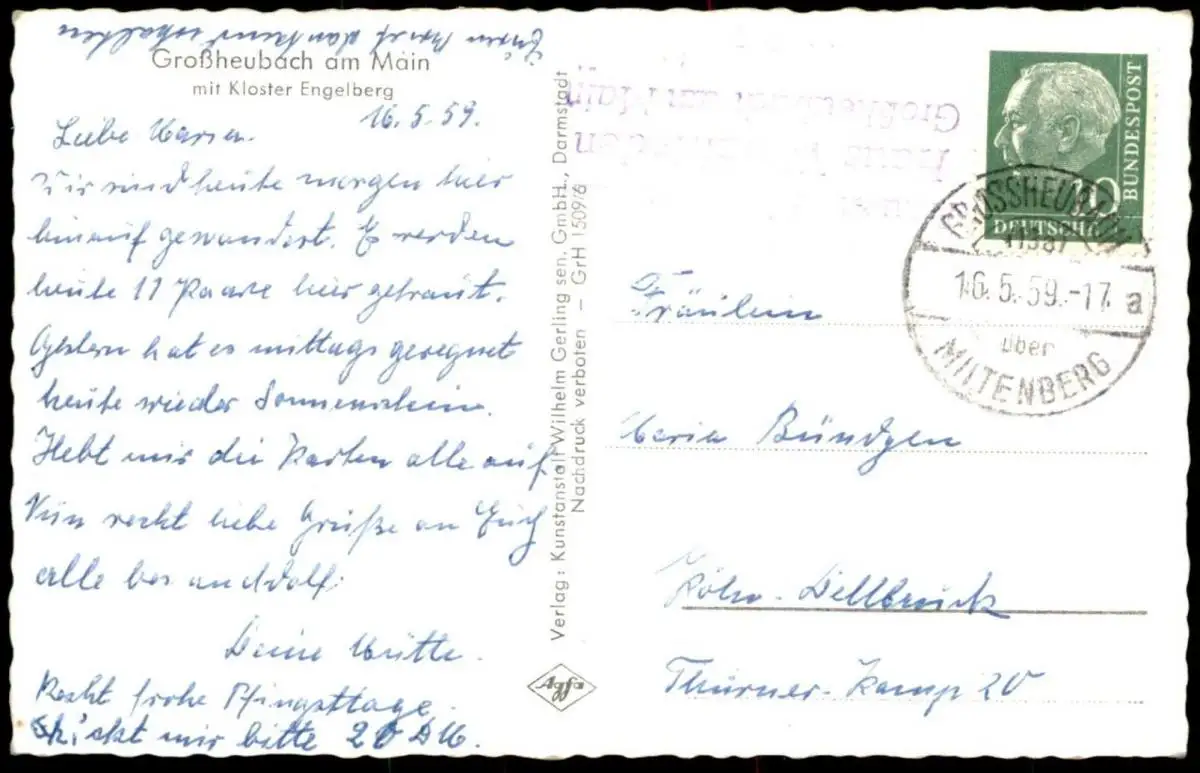 Euren Brief dankend erhalten
Großheubach am Main
mit Kloster Engelberg
16.5.59.
Liebe Maria.
Wir sind heute morgen hier
hinauf gewandert. Es werden
heute 11 Paare hier getraut.
Gestern hat es mittags geregnet
heute wieder Sonnenschein.
Hebt mir die Karten alle auf
Nun recht liebe Grüße an Euch
alle bes
Deine Mutter.
Recht frohe Pfingsttage.
Schickt mir bitte 20 DM.
Verlag: Kunstanstalt Wilhelm Gerling sen. GmbH., Darmstadt
Nachdruck verboten – GrH 1509/6
Agfa
Haus
Großheubach am Main
DEUTSCHE
BUNDESPOST
GROSSHEUBACH
16.5.59.-17 a
über
MILTENBERG
Fräulein
Maria Bündgen
Köln-Dellbrück
Thurner-Kamp 20